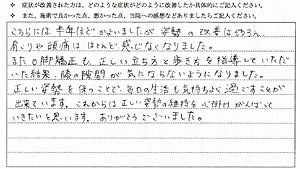 ※ 症状が改善された方は、どのような症状がどのように改善したか具体的にご記入ください。
※ また、施術で良かった点、悪かった点、当院への感想などありましたらご記入ください。
こちらには半年ほどかよいましたが、姿勢の改善はもちろん、
肩こりや頭痛はほとんど感じなくなりました。
また O脚矯正も、正しい立ち方と歩き方を指導していただ
いた結果、膝の隙間が気にならないようになりました。
正しい姿勢を保つことで、毎日の生活も気持ちよく過ごすことが
出来ています。これからは正しい姿勢の維持を心掛けがんばって
いきたいと思います。ありがとうございました。